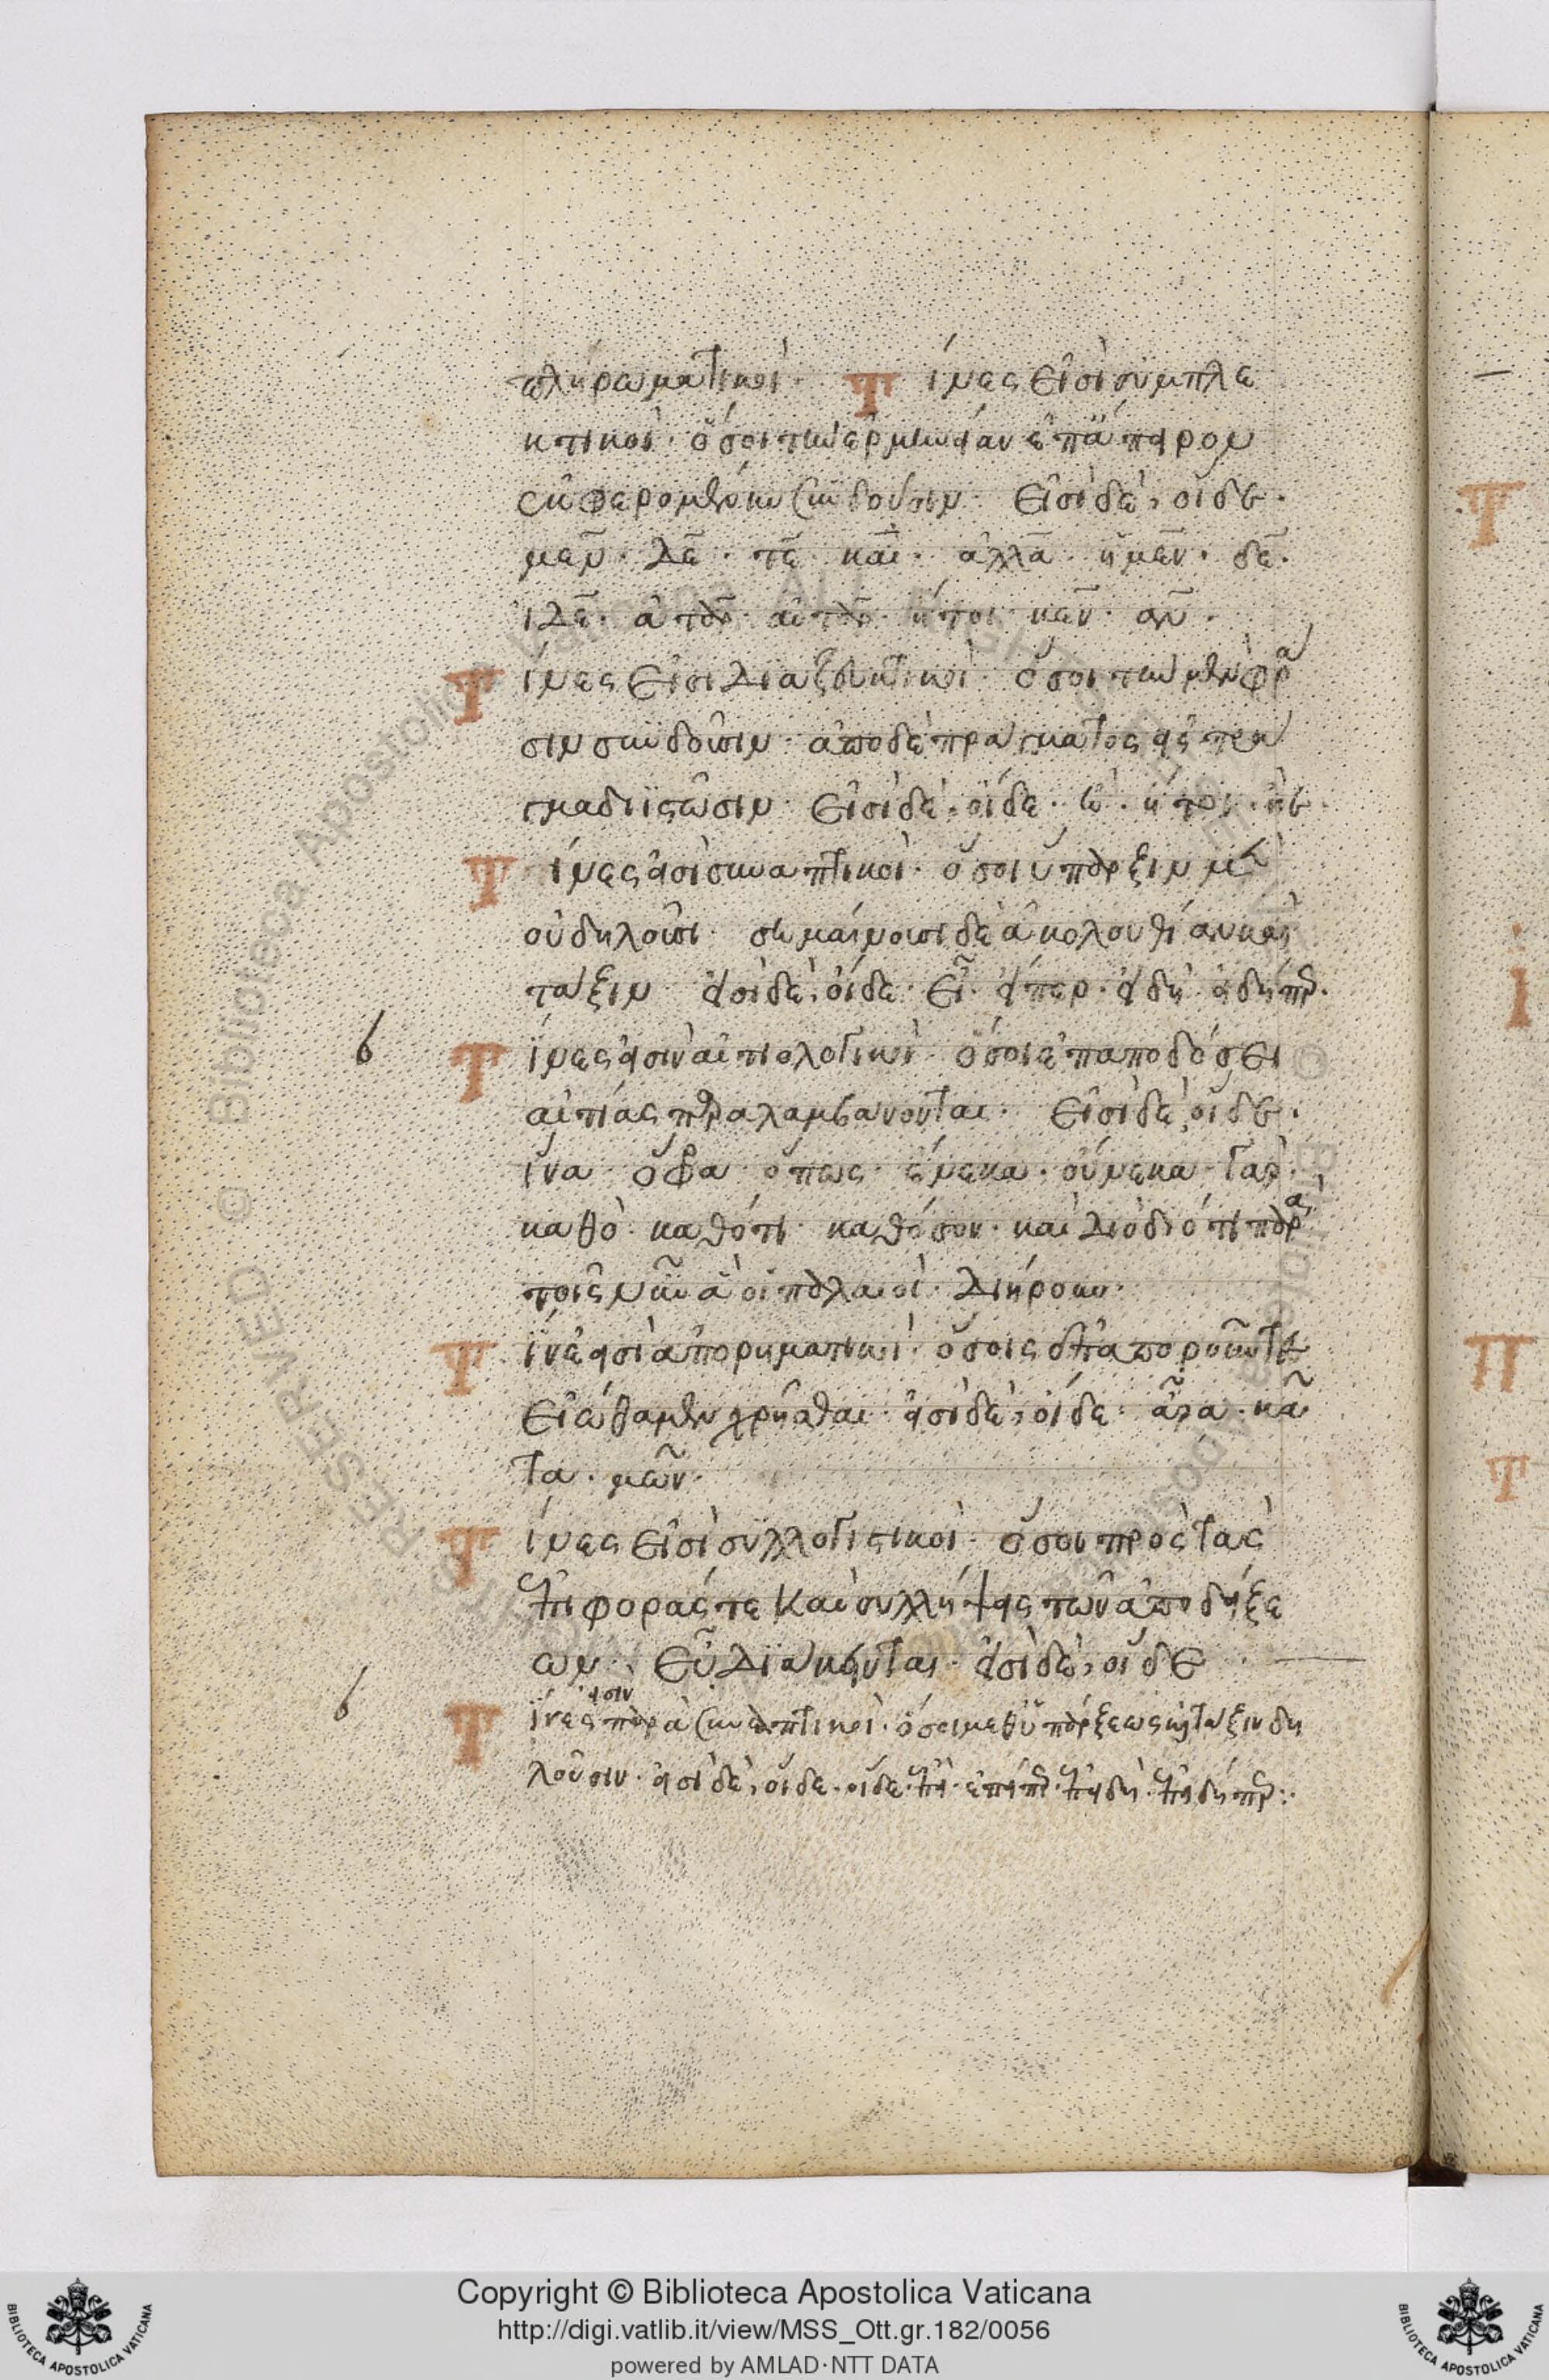 πληρωματικοί. Τίνες εἰσὶ συμπλε
κτικοί. ὅσοι τὴν ἑρμηνείαν ἐπάπειρον
ἐκφερομένην συνδοῦσιν. εἰσὶ δὲ, οἵδε.
μεν. δε. τε. και. αλλα. ημεν. δε.
ιδε. ἀταρ. αὐταρ. ἤτοι. κεν. αν.
Τίνες εἰσι διαζευκτικοί. ὅσοι τὴν μὲν φρά
σιν συνδοῦσιν. ἀπο δὲ πράγματος εἰς πρα
γμα διϊστῶσιν. εἰσὶ δὲ, οἵδε. ὢ. ἤτοι. ἠε.
Τίνες εἰσὶ συναπτικοί. ὅσοι ὕπαρξιν μὲν
οὐ δηλοῦσι. σημαίνουσι δὲ ἀκολουθίαν καὶ
τάξιν. εἰσὶ δὲ, οἵδε. εἰ. εἴπερ. εἰδὴ. εἰδήπερ.
Τίνες εἰσὶν αἰτιολογικοί. ὅσοι ἐπ αποδόσει
αἰτίας παραλαμβάνονται. εἰσὶ δὲ, οἵδε.
ἵνα. ὄφρα. ὅπως. ἕνεκα. οὕνεκα. γαρ.
καθὸ. καθότι. καθόσον. καὶ διὸ διότι παρὰ
τοῖς
Τίνες εἰσὶ ἀπορηματικοί. ὅσοις ἐπαποροῦντες
εἰώθαμεν χρῆσθαι. εἰσὶ δὲ, οἵδε. ἆρα. κᾆ
τα. μῶν.
Τίνες εἰσὶ συλλογιστικοί. ὅσοι πρὸς τὰς
ἐπιφοράς τε καὶ συλλήψεις τῶν ἀποδείξε
ων. εὖ διάκεινται. εἰσὶ δὲ, οἵδε
Τίνες εἰσιν παρὰ συναπτικοὶ. ὅσοι μεθ ὑπάρξεως καὶ τάξιν δη
λοῦσιν. εἰσὶ δὲ, οἵδε. οἵδε. ἐπεὶ. ἐπείπερ. ἐπειδὴ. ἐπειδήπερ:
Copyright © Biblioteca Apostolica Vaticana
http://digi.vatlib.it/view/MSS_Ott.gr.182/0056
powered by AMLAD·NTT DATA